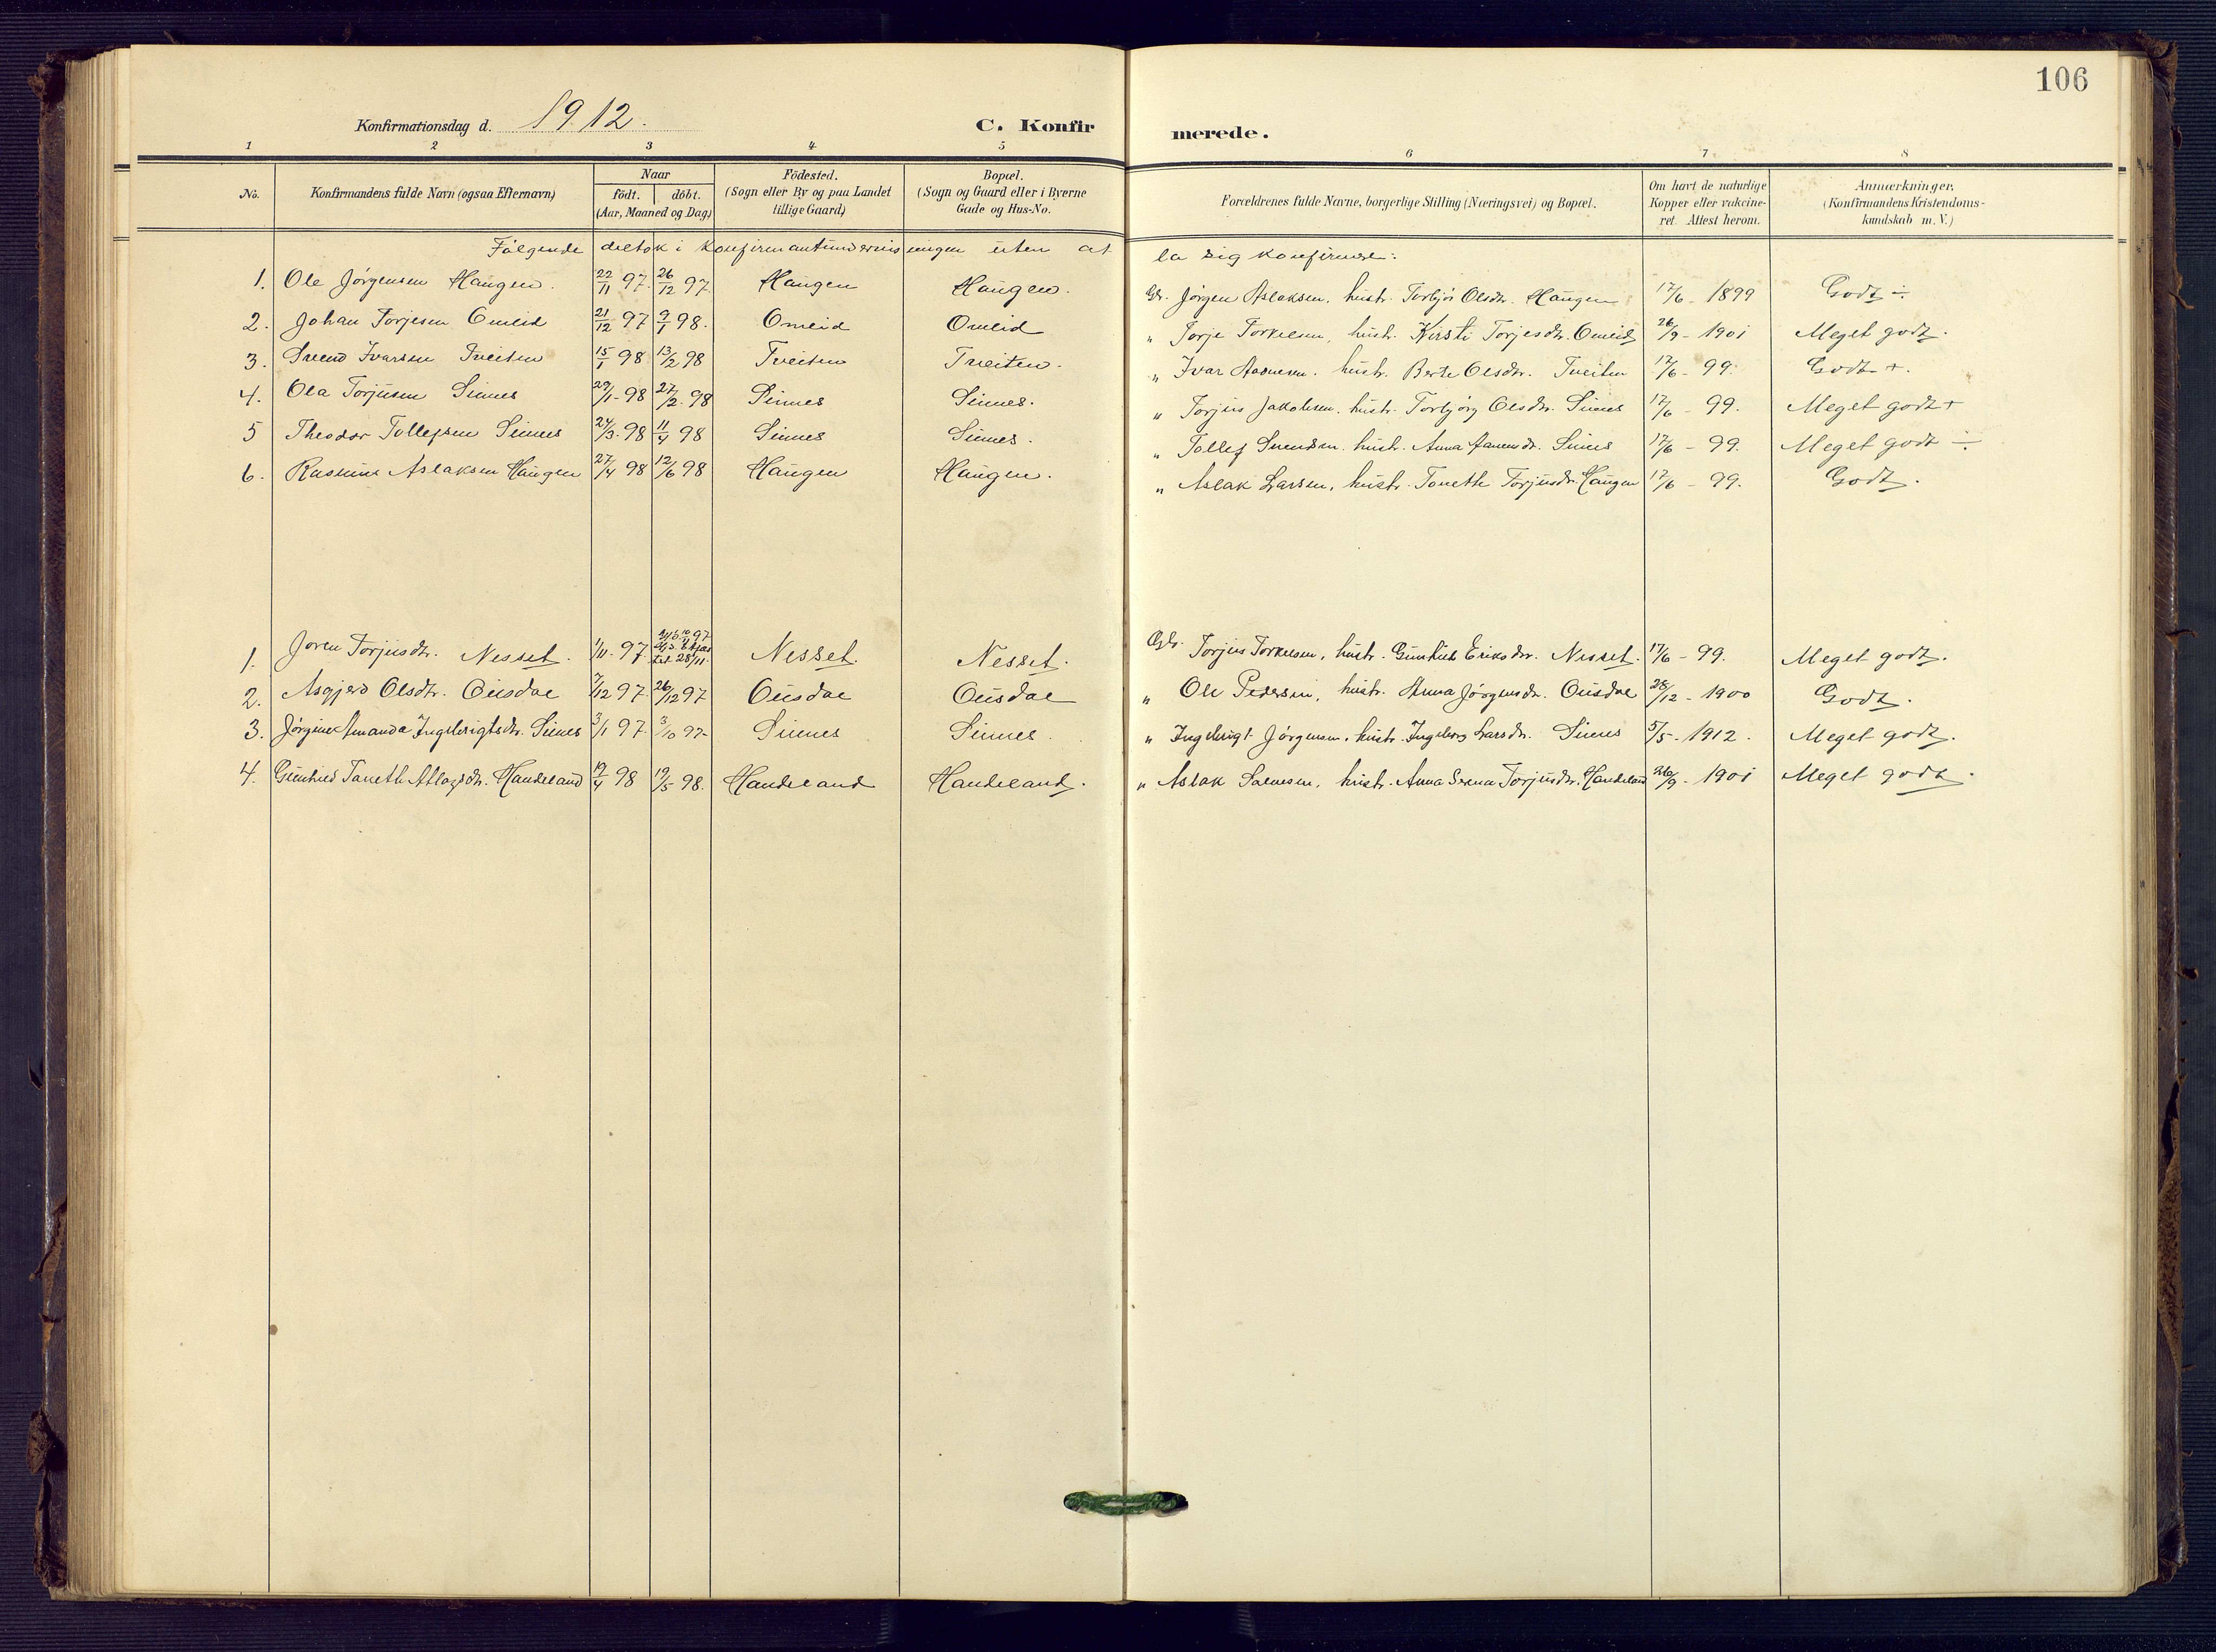 106
Konfirmationsdag d. 1912.
C. Konfirmerede.
1 2 3 4 5 6 7 8
No. Konfirmandens fulde Navn (ogsaa Efternavn) Naar födt. döbt. (Aar, Maaned og Dag) Födested. (Sogn eller By og paa Landet tillige Gaard) Bopæl. (Sogn og Gaard eller i Byerne Gade og Hus-No. Forældrenes fulde Navne, borgerlige Stilling (Næringsvei) og Bopæl. Om havt de naturlige Kopper eller vakcineret. Attest herom. Anmærkninger. (Konfirmandens Kristendomskundskab m. V.)
Følgende deltok i konfirmantundervisningen uten at la sig konfirmere:
1. Ole Jørgensen Haugen. 22/11 97. 26/12 97 Haugen Haugen. Gbr. Jørgen Aslaksen, hustr. Torbjør Olsdtr. Haugen 17/6 - 1899 Godt ÷
2. Johan Torjesen Omlid 21/12 97 9/1 98. Omlid Omlid " Torje Torkelsen, hustr. Kirsti Torjesdtr. Omlid 26/9 - 1901 Meget godt.
3. Svend Ivarsen Tveiten 15/1 98 13/2 98 Tveiten Tveiten. " Ivar Aasuesen. hustr. Berte Olsdtr. Tveiten 17/6 - 99. Godt +.
4. Ola Torjusen Sinnes 29/1 - 98 27/2 - 98 Sinnes Sinnes. " Torjus Jakobsen. hustr. Torbjørg Olsdtr. Sinnes 17/6 - 99. Meget godt +
5 Theodor Tollefsen Sinnes 24/3 - 98 11/4 98 Sinnes Sinnes. " Tollef Svendsen hustr. Anna Aanensdtr. Sinnes 17/6 - 99. Meget godt ÷
6. Rasmus Aslaksen Haugen 27/4 98 12/6 98 Haugen Haugen. " Aslak Larsen, hustr. Tonette Torjusdtr. Haugen 17/6 - 99. Godt.
1. Joren Torjusdtr. Nesset. 1/11 - 97. 28/11. Nesset. Nesset. Gbr. Torjus Torkelsen, hustr. Gunhild Eriksdtr. Nesset. 17/6 - 99. Meget godt.
2. Asgjerd Olsdtr. Ousdal 7/12 97 26/12 97 Ousdal Ousdal " Ole Pedersen, hustr. Anna Jørgensdtr. Ousdal 28/12 - 1900 Godt.
3. Jørgine Amanda Ingebrigtsdtr. Sinnes 3/1 97. 3/10 97- Sinnes Sinnes. " Ingebrigt Jørgensen, hustr. Ingeborg Larsdtr. Sinnes 5/5 - 1912. Meget godt.
4. Gunhild Taneth Atlagsdtr. Handeland 19/4 98 19/5 98. Handeland Handeland. " Aslak Salvesen, hustr. Anna Serina Torjusdtr. Handeland 26/9 - 1901 Meget godt.